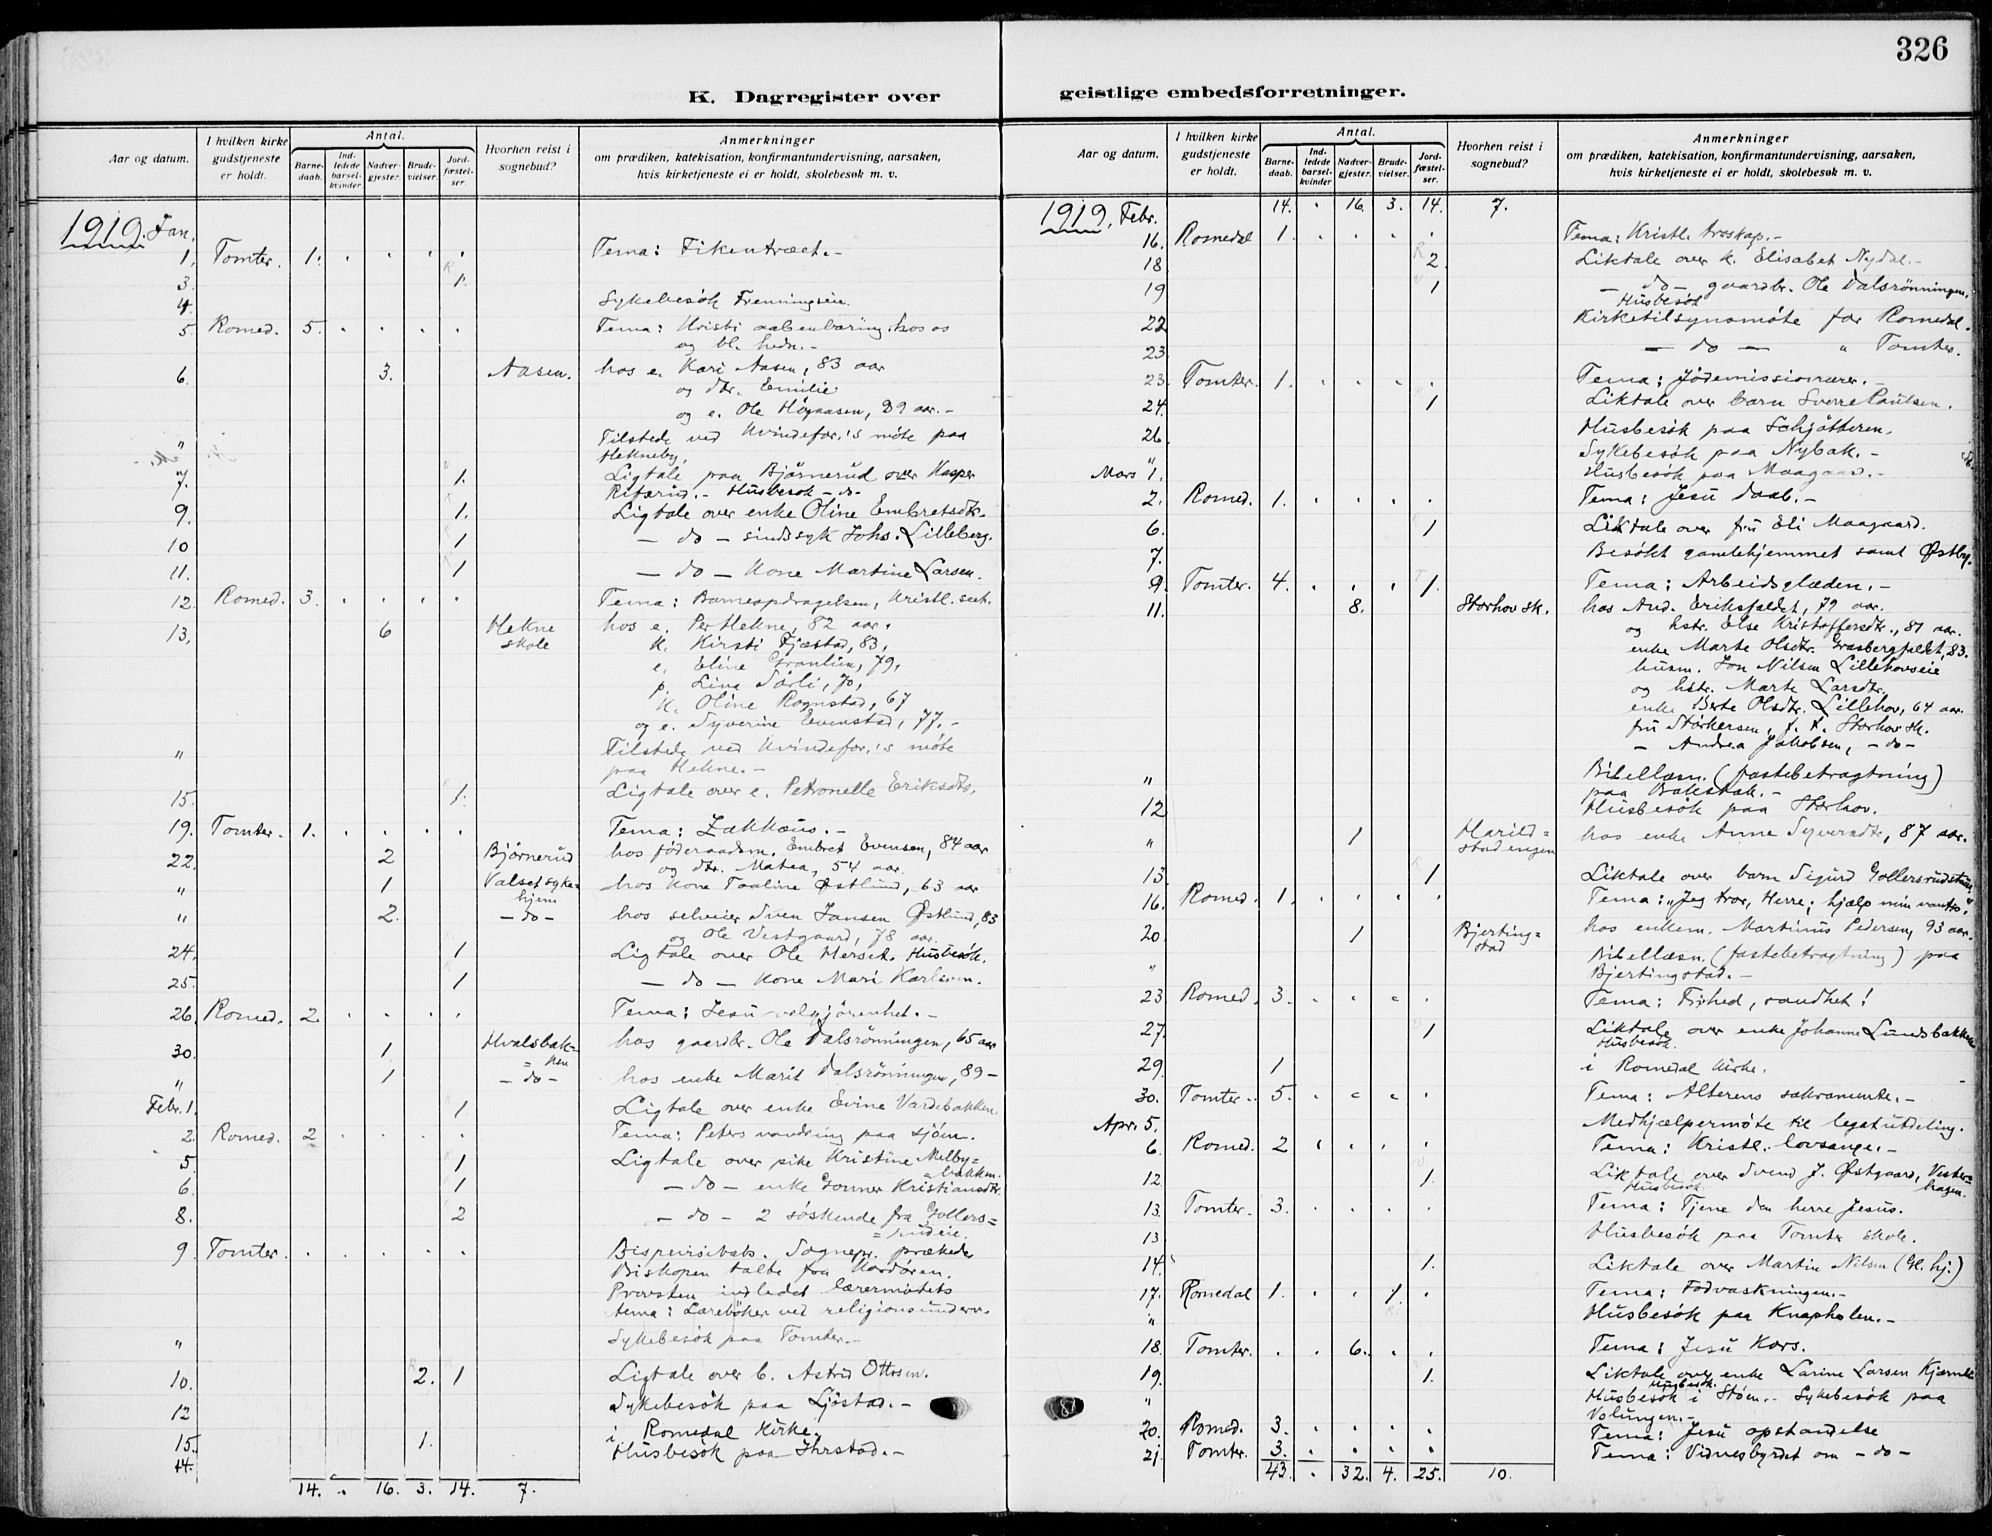 326
K. Dagregister over geistlige embedsforretninger.
Aar og datum.
I hvilken kirke gudstjeneste er holdt.
Antal.
Barne-daab.
Ind-ledede barsel-kvinder.
Nadver-gjester.
Brude-vielser.
Jord-fæstel-ser.
Hvorhen reist i sognebud?
Anmerkninger
om prædiken, katekisation, konfirmantundervisning, aarsaken,
hvis kirketjeneste ei er holdt, skolebesøk m. v.
1919. Jan.
1. Tomter. 1. . . . . Tema: Fikentræet.-
3. 1.
4. Sykebesök Frenningseie.
5. Romed. 5. . . . . Tema: Kristi aabenbaring hos os
og bl. hedn.-
6. 3. Aasen. hos e. Kari Aasen, 83 aar
og dtr. Emilie
og e. Ole Högaasen, 89 aar.-
" Tilstede ved Kvindefor.'s möte paa
Hekneby.
7. 1. Ligtale paa Bjørnerud over Kasper
- Husbesök - do-
9. 1. Ligtale over enke Oline Embretsdtr.
10 1 - do - sindssyk Johs. Lilleberg.
11. 1 - do - Kone Martine Larsen.
12. Romed. 3. . . . . Tema: Barneopdragelsen, Kristl. sect.
13. 6 Hekne skole hos e. Per Hekne, 82 aar.
K. Kirsti Fjæstad, 83,
e. Eline Granlien, 79,
p. Lina Sörli, 70,
K. Oline Rognstad, 67
og e. Syverine Evenstad, 77.-
" Tilstede ved Kvindefor.'s möte
paa Hekne.-
15. 1. Ligtale over e. Petronelle Eriksdtr.
19. Tomter. 1. . . . . Tema: Zakkæus.-
22. 2 Bjørnerud hos föderaadsm. Embret Evensen, 84 aar
og dtr. Matea, 54 aar.
" 1 Valset syke=hjem hos Kone Pauline Østlund, 63 aar
" 2. - do - hos selveier Sven Jansen Østlund, 83
og Ole Vestgaard, 78 aar.
24. 1 Ligtale over Ole Herset. Husbesök.
25. 1 - do - Kone Mari Karlsen.
26. Romed. 2. . . . . Tema: Jesu velgjörenhet.-
30. 1 Hvalsbak=ken hos gaardbr. Ole Dalsrönningen, 65 aar
" 1 - do - hos enke Marit Dalsrönningen, 89 -
Febr. 1. 1. Ligtale over enke Evine Vardebakken
2. Romed. 2 . . . . Tema: Peters vandring paa sjöen.
5 1 Ligtale over pike Kristine Melby=
=bakken.
6. 1 - do - enke Gonner Kristiansdtr.
8. 2 - do - 2 söskende fra Gollers=
=rudeie.
9. Tomter. . . . . . Bispevisitats. Sognepr. prækede
Biskopen talte fra Kordören.
Provsten indledet lærermötets
tema: Læreböker ved religionsunderv.
" Sykebesök paa Tomter.-
10. 2. 1 Ligtale over b. Astrid Ottosen.
12 Sykebesök paa Ljöstad.-
15. 1. i Romedal Kirke.
14. Husbesök paa Ihrstad.-
14. . 16. 3. 14. 7.
Aar og datum.
I hvilken kirke gudstjeneste er holdt.
Antal.
Barne-daab.
Ind-ledede barsel-kvinder
Nadver-gjester.
Brude-vielser.
Jord-fæstel-ser.
Hvorhen reist i sognebud?
Anmerkninger
om prædiken, katekisation, konfirmantundervisning, aarsaken,
hvis kirketjeneste ei er holdt, skolebesøk m. v.
1919. Febr. 14. . 16. 3. 14. 7.
16. Romedal 1. . . . . Tema: Kristl. troskap.-
18 2. Liktale over K. Elisabet Nydal.-
19 1 - do - gaardbr. Ole Dalsrönningen.
Husbesök
22 Kirketilsynsmöte for Romedal.
23 - do - " Tomter.
23. Tomter. 1. . . . . Tema: Jödemissionærer.-
24. 1 Liktale over barn Sverre Paulsen.
26. Husbesök paa Schjötteren.
" Sykebesök paa Nybak.-
Mars 1. Husbesök paa Maagaar.-
2. Romed. 1. . . . . Tema: Jesu daab.-
6. 1 Liktale over fru Eli Maagaard.
7. Besökt gamlehjemmet samt Østby.
9. Tomter. 4. . . . 1. Tema: Arbeidsglæden.-
11. 8. Storhov sk. hos And. Eriksfældet, 79 aar.
og hstr. Else Kristoffersdtr., 81 aar.
enke Marte Olsdtr. Grasbergfeldet, 83.
husm. Jon Nilsen Lillehovseie
og hstr. Marte Larsdtr.
enke Berte Olsdtr. Lillehov, 64 aar.
fru Störkersen, f. K. Storhov sk.
- Andrea Jakobsen, - do -
" Bibellæsn. (fastebetragtning)
paa Bakstak.-
12 Husbesök paa Storhov.
" 1 Harild=stad engen hos enke Anne Syversdtr, 87 aar.
13. 1 Liktale over barn Sigurd Gollersrudstuen
16. Romed. 1. . . . . Tema: "Jeg tror, Herre; hjælp min vantro".
20 1 Bjerting=stad hos enkem. Martinus Pedersen, 93 aar.
" Bibellæsn. (fastebetragtning) paa
Bjertingstad.-
23 Romed. 3. . . . . Tema: Frihed, sandhet!
27. 1 Liktale over enke Johanne Lundsbakken
Husbesök.
29. 1 i Romedal Kirke.
30. Tomter. 5. . . . . Tema: Alterens sakramente.-
Apr. 5. Medhjælpermöte til legatutdeling.
6. Romed. 2 . . . . Tema: Kristl. lovsange.-
12 1. Liktale over Svend J. Østgaard, Vester=
Husbesök. hagen.
13. Tomter. 3. . . . . Tema: Tjene den herre Jesus.
13 Husbesök paa Tomter skole.
14. 1. Liktale over Martin Nilsen (Gl. hj.)
17. Romedal 1. . . 1. . Tema: Fodvaskningen.-
" Husbesök paa Knapholen.-
18. Tomter. . . 6. . . Tema: Jesu Kors.
19. 1. Liktale over enke Larine Larsen Kjærnli
Husbesök.
" Husbesök i Støen.- Sykebesök paa
Volungen.-
20. Romed. 3. . . . . Tema: Jesu opstandelse
21. Tomter. 3. . . . . Tema: Vidnesbyrdet om - do -
43. . 32. 4. 25. 10.